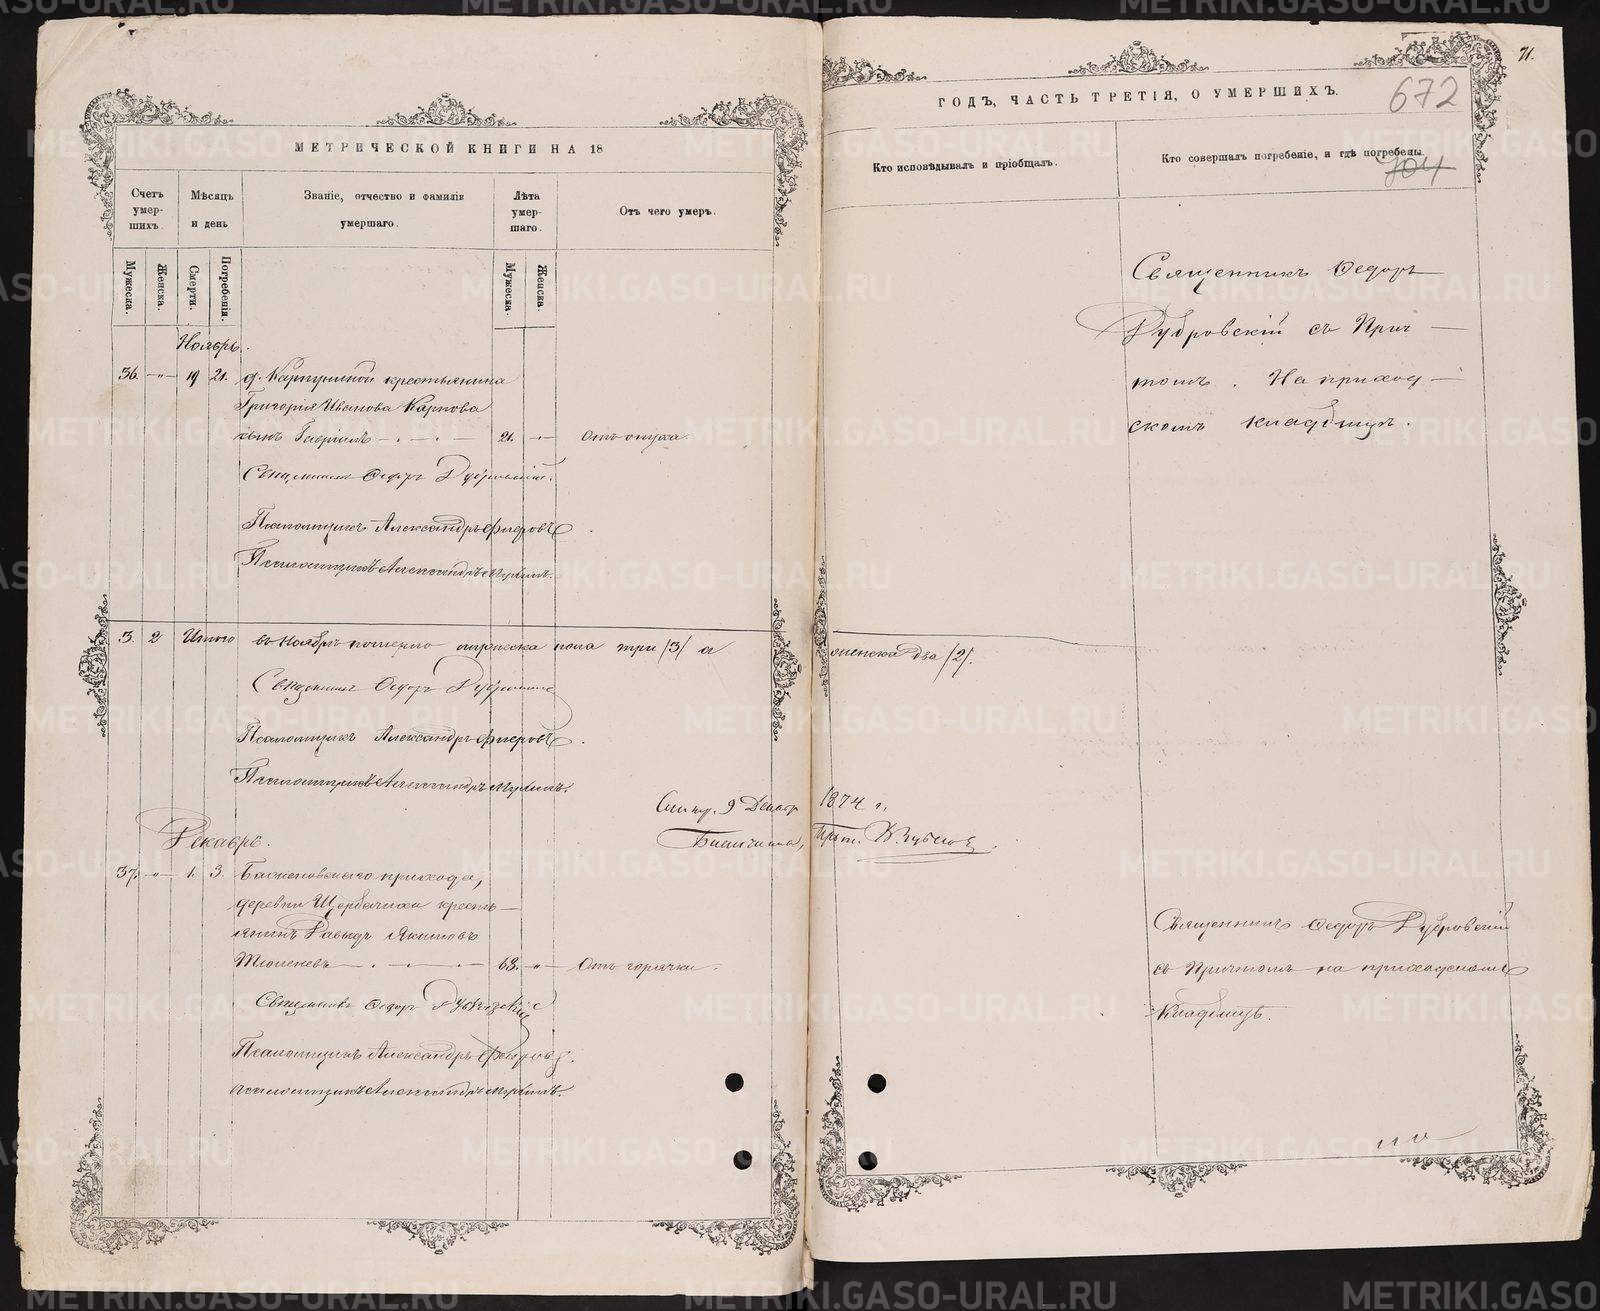 МЕТРИЧЕСКОЙ КНИГИ НА 18
Счетъ умер- шихъ.
Мѣсяцъ и день
Званіе, отчество и фамилія умершаго.
Лѣта умер- шаго.
Отъ чего умеръ.
Мужеска.
Женска.
Смерти.
Погребенія.
Мужеска.
Женска.
Ноябрь.
36. -"- 19 21. д. Карпуниной крестьянина
Григорія Иванова Карпова
сынъ Гавріилъ 21. Отъ опуха.
Священникъ Ѳедоръ Дубровскій.
Псаломщикъ Александръ
Псаломщикъ Александръ
3. 2 Итого въ Ноябрѣ померло мужеска пола три /3/ а
Священникъ Ѳедоръ Дубровскій
Псаломщикъ Александръ
Псаломщикъ Александръ
9 Декаб
Декабрь.
37. -"- 1. 3. прихода,
деревни Щербачихи кресть-
янинъ Давыдъ Якимовъ
Тюленевъ 63. -"- Отъ горячки.
Священникъ Ѳедоръ Дубровскій
Псаломщикъ Александръ
Псаломщикъ Александръ
71.
ГОДЪ, ЧАСТЬ ТРЕТІЯ, О УМЕРШИХЪ.
672
Кто исповѣдывалъ и пріобщалъ.
Кто совершалъ погребеніе, и гдѣ погребены.
704
Священникъ Ѳедоръ
Дубровскій съ Прич-
томъ. На приход-
скомъ кладбищѣ.
женска два /2/.
1874 г.
Прот.
Священникъ Ѳедоръ Дубровскій
съ Причтомъ на приходскомъ
Кладбищѣ.
METRIKI.GASO-URAL.RU